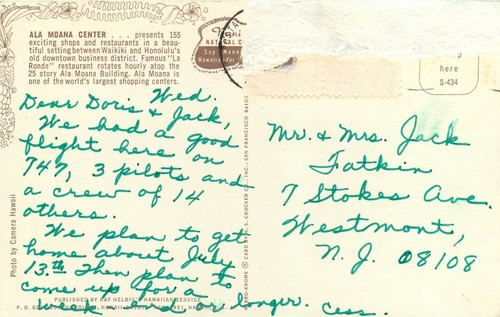 ALA MOANA CENTER . . . presents 155
exciting shops and restaurants in a beau-
tiful setting between Waikiki and Honolulu's
old downtown business district. Famous "La
Ronde" restaurant rotates hourly atop the
25 story Ala Moana Building. Ala Moana is
one of the world's largest shopping centers.
Wed.
Dear Doris & Jack,
We had a good
flight here on
747, 3 pilots and
a crew of 14
others.
We plan to get
home about July
13th. Then plan to
come up for a
week end or longer.
Cess.
Photo by Camera Hawaii
PUBLISHED BY RAY HELBIG'S HAWAIIAN SERVICE
P. O.
HAWAII
SAN FRANCISCO
here
S-434
Mr. & Mrs. Jack
Fatkin
7 Stokes Ave.
Westmont,
N. J. 08108